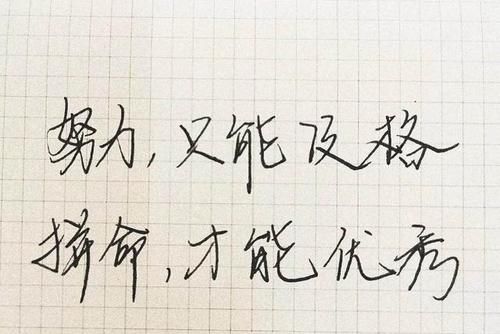 努力,只能及格
拼命,才能优秀